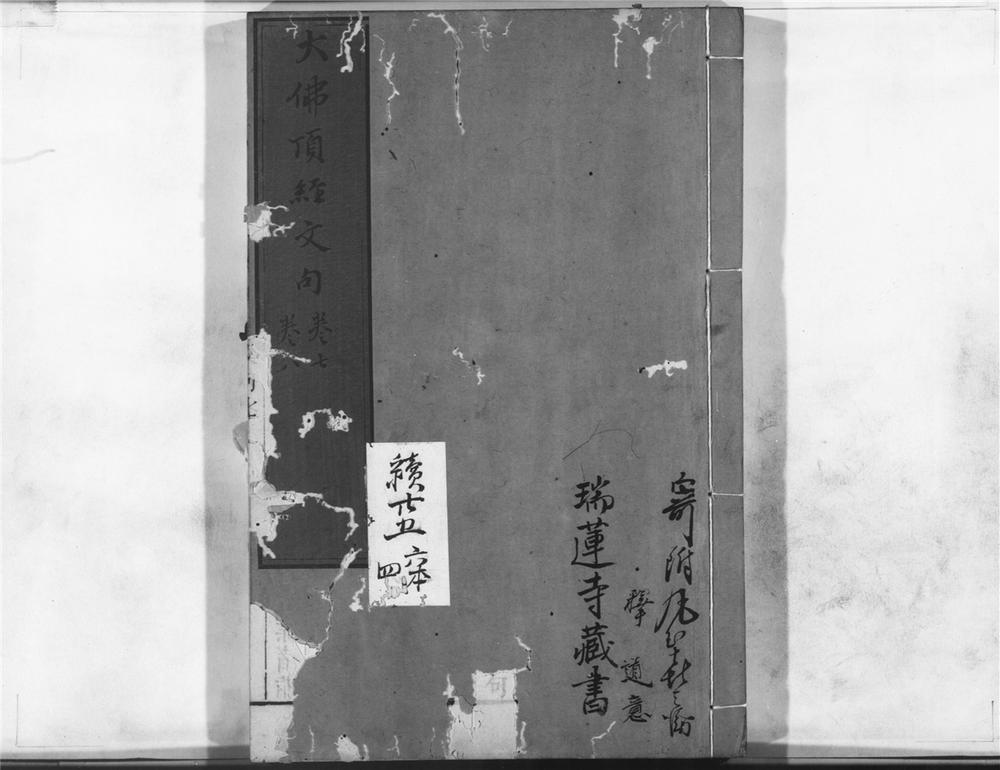 寄附
釋道意
瑞蓮寺藏書
續十五
六本
四
大佛頂經文句
卷七
卷八